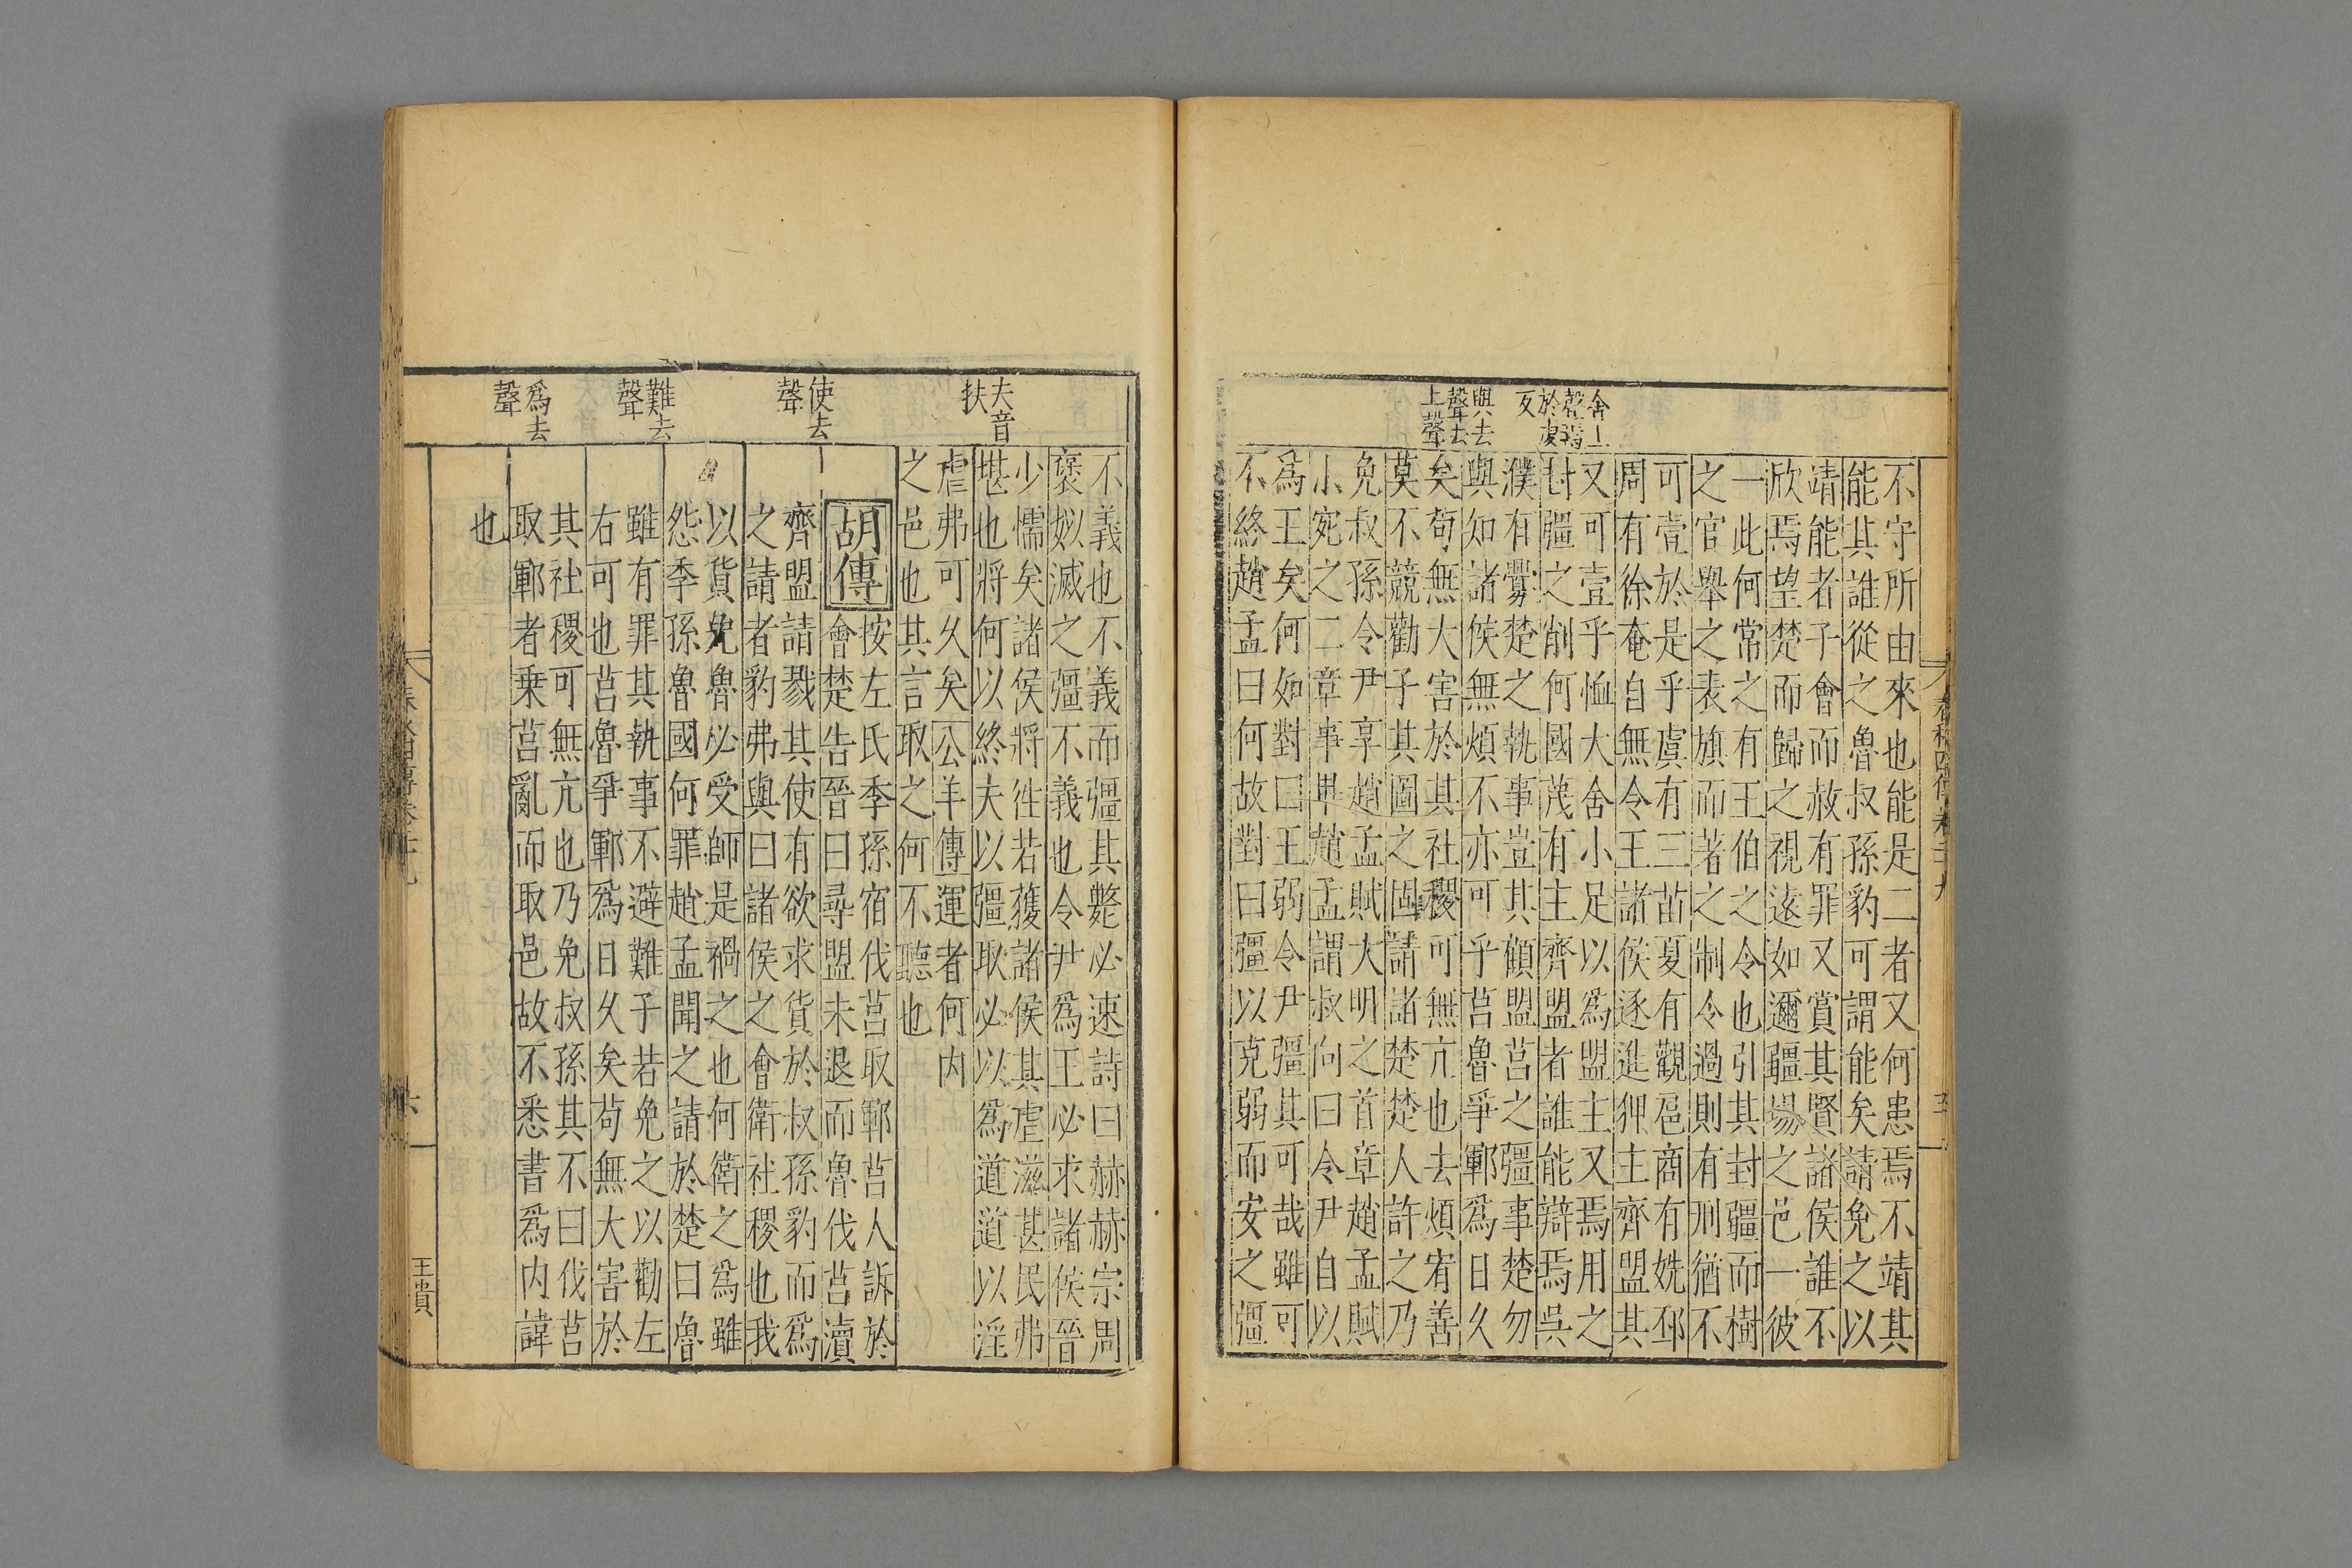 春秋四傳卷二十九
舍上
聲溤
於度
反
與去
聲去
上聲
不守所由來也能是二者又何患焉不靖其
能其誰從之魯叔孫豹可謂能矣請免之以
靖能者子會而赦有罪又賞其賢諸侯誰不
欣焉望楚而歸之視遠如邇疆埸之邑一彼
一此何常之有王伯之令也引其封疆而樹
之官舉之表旗而著之制令過則有刑猶不
可壹於是乎虞有三苗夏有觀扈商有姺邳
周有徐奄自無令王諸侯逐進狎主齊盟其
又可壹乎恤大舍小足以為盟主又焉用之
封疆之削何國蔑有主齊盟者誰能辯焉吳
濮有釁楚之執事豈其顧盟莒之疆事楚勿
與知諸侯無煩不亦可乎莒魯爭鄆為日久
矣苟無大害於其社稷可無亢也去煩宥善
莫不競勸子其圖之固請諸楚楚人許之乃
免叔孫令尹享趙孟賦大明之首章趙孟賦
小宛之二章事畢趙孟謂叔向曰令尹自以
為王矣何如對曰王弱令尹彊其可哉雖可
不終趙孟曰何故對曰彊以克弱而安之彊
夫音
扶
使去
聲
難去
聲
為去
聲
不義也不義而彊其斃必速詩曰赫赫宗周
褒姒滅之彊不義也令尹為王必求諸侯晉
少懦矣諸侯將往若獲諸侯其虐滋甚民弗
堪也將何以終夫以彊取必以為道道以淫
虐弗可久矣公羊傳運者何內
之邑也其言取之何不聽也
胡傳
按左氏季孫宿伐莒取鄆莒人訴於
會楚告晉曰尋盟未退而魯伐莒瀆
齊盟請戮其使有欲求貨於叔孫豹而為
之請者豹弗與曰諸侯之會衛社稷也我
以貨免魯必受師是禍之也何衛之為雖
怨季孫魯國何罪趙孟聞之請於楚曰魯
雖有罪其執事不避難子若免之以勸左
右可也莒魯爭鄆為日久矣苟無大害於
其社稷可無亢也乃免叔孫其不曰伐莒
取鄆者乗莒亂而取邑故不悉書為內諱
也
春秋四傳卷二十九
六
王貴